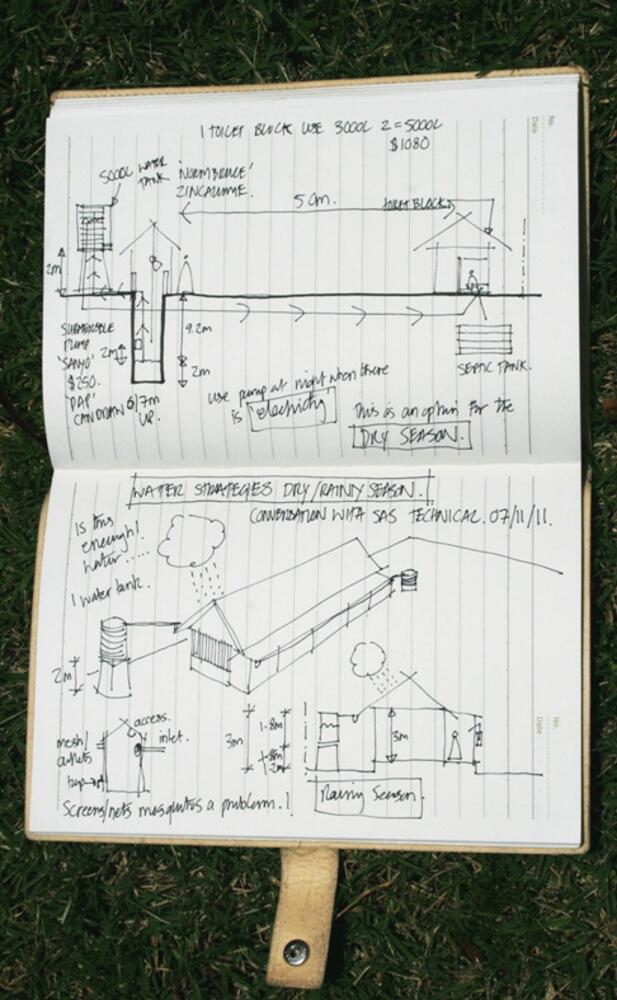 1 TOILET BLOCK USE 3000L 2 = 5000L
$1080
5000L WATER
TANK
ZINCALUME.
50m.
TOILET BLOCK
2m
9.2m
2m
2m
SUBMERSABLE
PUMP
'SANYO'
$250.
'DAP'
CAN DRAW 6/7m
UP.
SEPTIC TANK.
use pump at night when there
is 'electricity'
This is an option for the
DRY SEASON.
WATER STRATEGIES DRY/RAINY SEASON.
CONVERSATION WITH SAS TECHNICAL. 07/11/11.
Is this
enough!
water.....
1 water tank.
2m
access.
mesh/
outlets
inlet.
tap
3m
1.8m
3m
Screens/nets mosquitos a problem.!
Rainy Season.
No.
Date
No.
Date